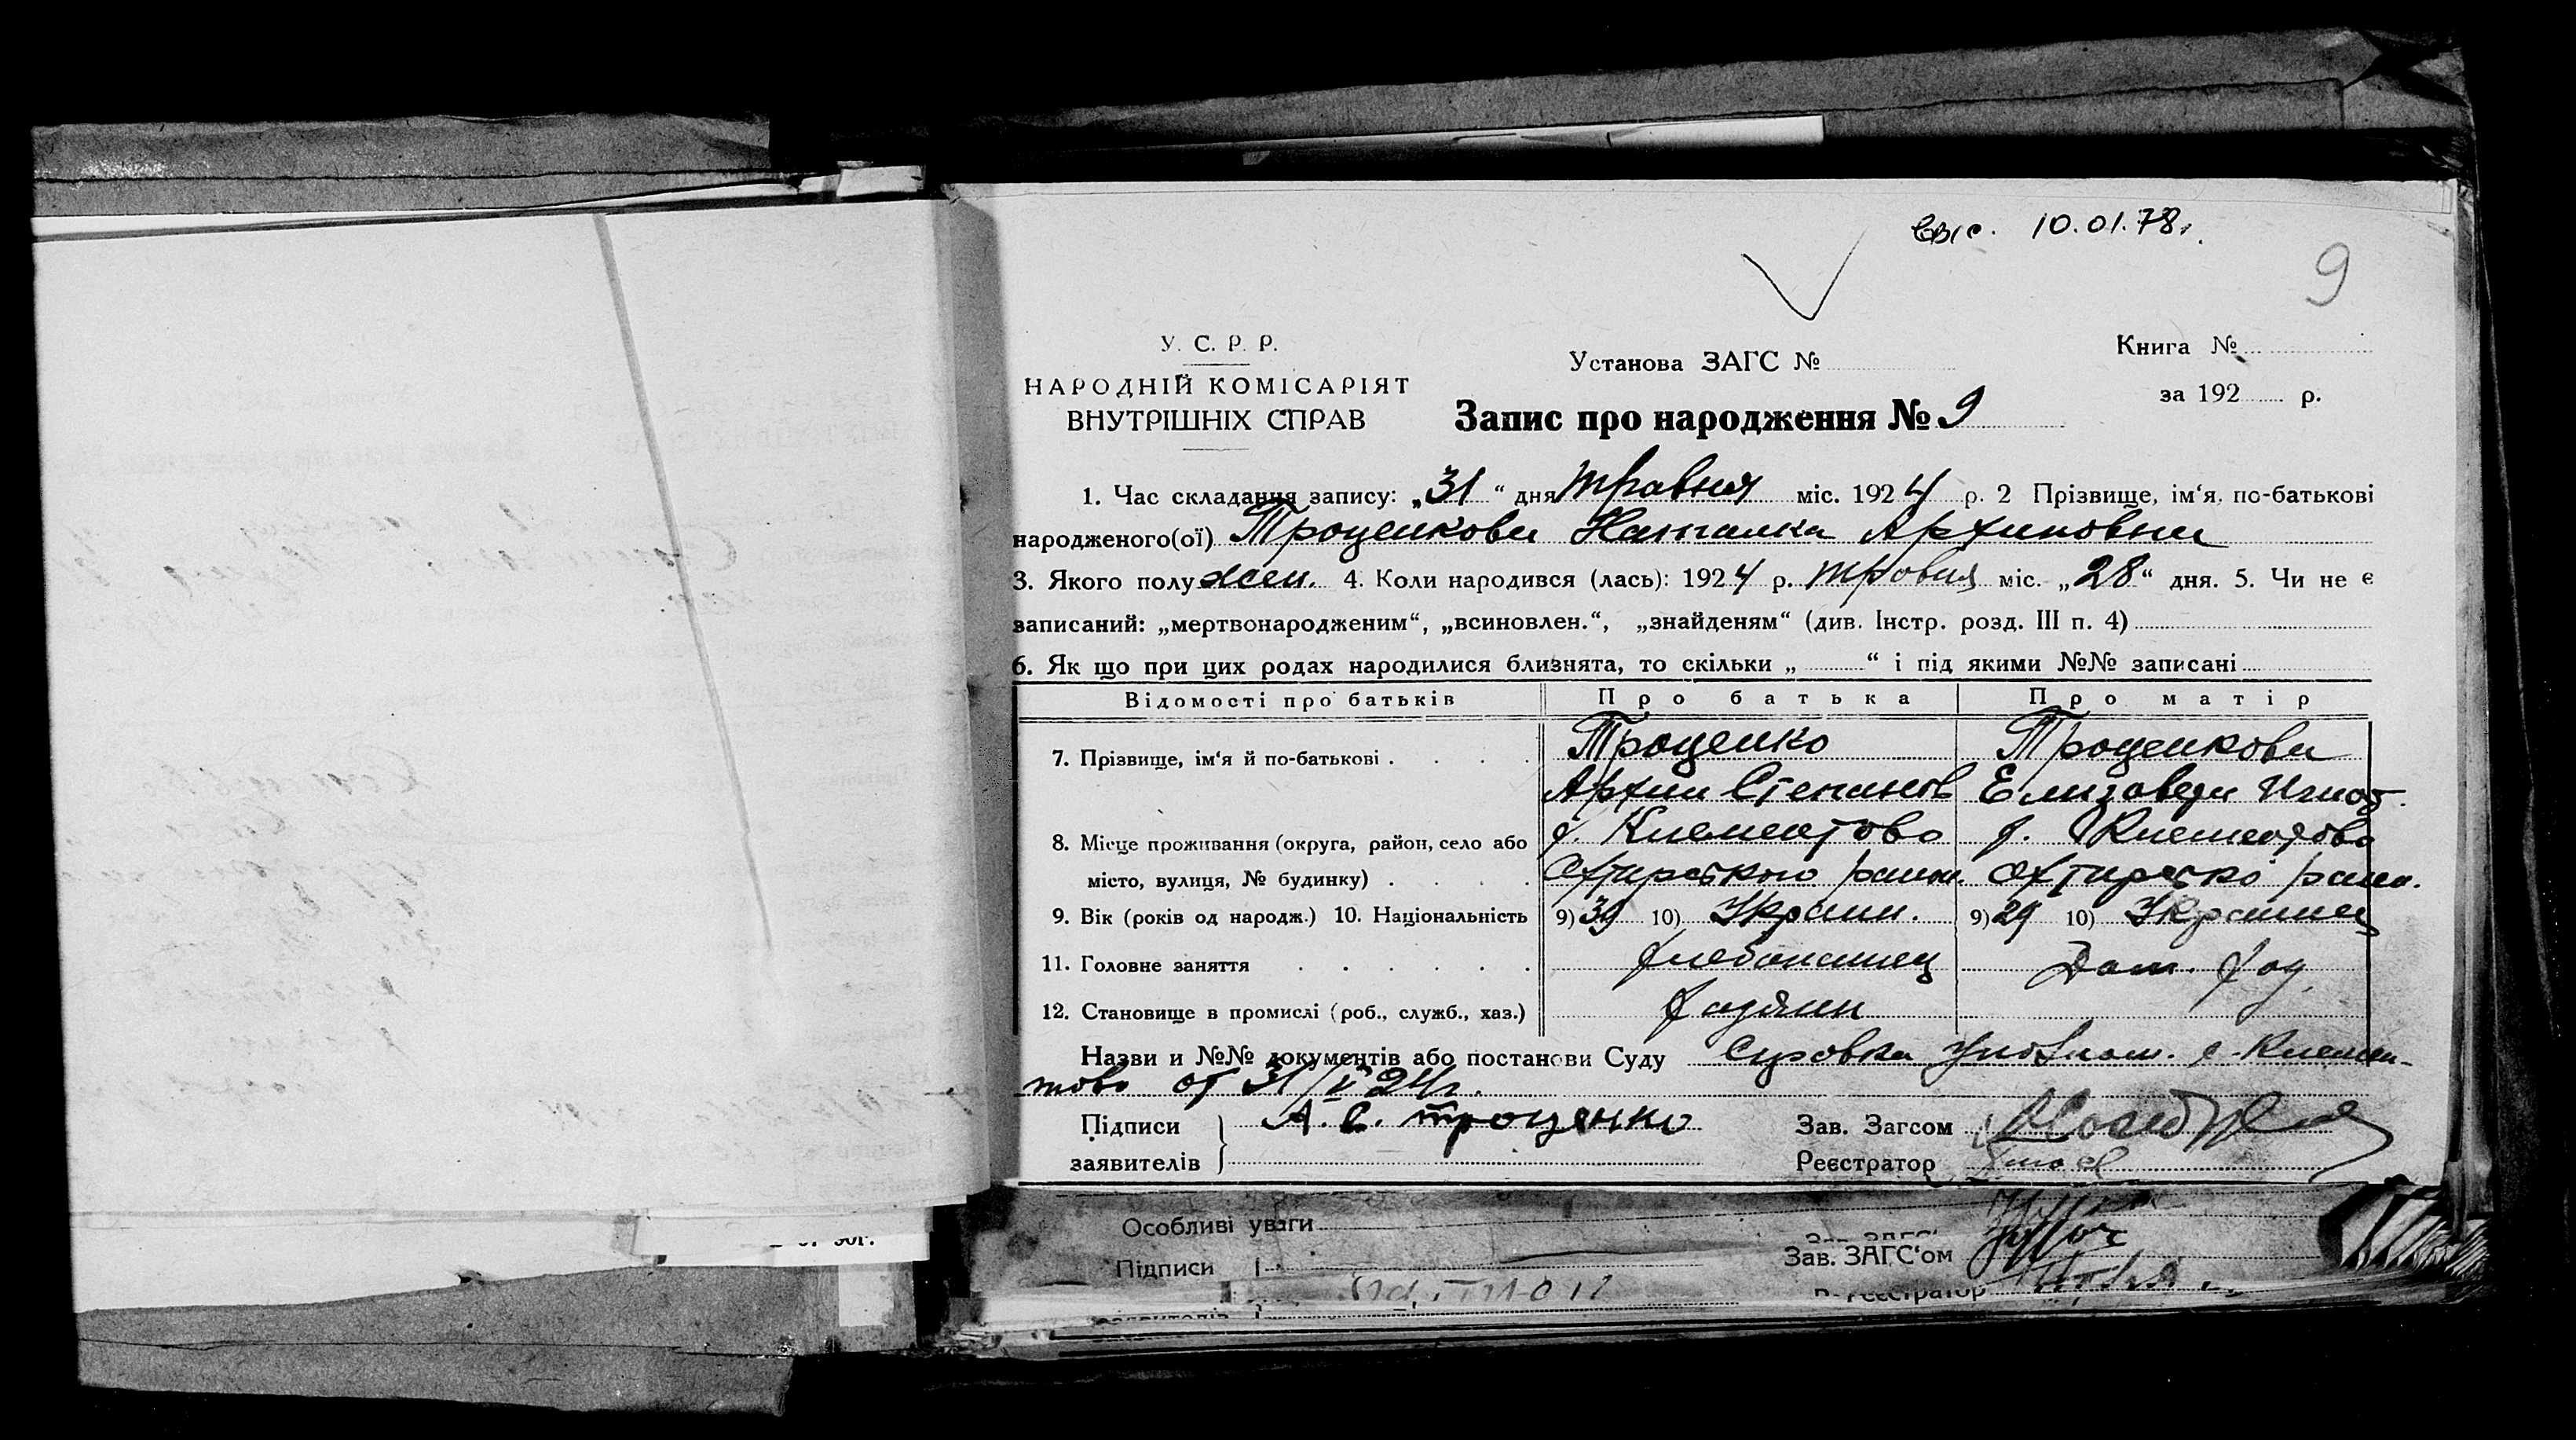 10.01.78.
9
У. С. Р. Р.
НАРОДНІЙ КОМІСАРІЯТ
ВНУТРІШНІХ СПРАВ
Установа ЗАГС №
Книга №
за 192 р.
Запис про народження № 9
1. Час складання запису: „31“ дня травня міс. 1924 р. 2 Прізвище, ім‘я, по-батькові
народженого(ої) Троценкова Наталка Архиповна
3. Якого полу жен. 4. Коли народився (лась): 1924 р. травня міс. „28“ дня. 5. Чи не є
записаний: „мертвонародженим“, „всиновлен.“, „знайденям“ (див. Інстр. розд. III п. 4)
6. Як що при цих родах народилися близнята, то скільки „ “ і під якими №№ записані
Відомості про батьків Про батька Про матір
7. Прізвище, ім‘я й по-батькові . . . . Троценко Троценкова
Архип Степанов Елизавета Игнат.
8. Місце проживання (округа, район, село або с. Клементово с. Клементово
місто, вулиця, № будинку) . . . . Охтирського район. Охтирсько район.
9. Вік (років од народж.) 10. Національність 9) 39 10) Україн. 9) 29 10) Украинец
11. Головне заняття . . . . . . хлебопашец Дом. хоз.
12. Становище в промислі (роб., служб., хаз.) хазяин
Назви и №№ документів або постанови Суду с. Клемен-
тово от 31/V 24 г.
Підписи А. С. Троценко Зав. Загсом
заявителів Реєстратор
Особливі уваги
Зав. ЗАГС‘ом
Підписи
Реєстратор